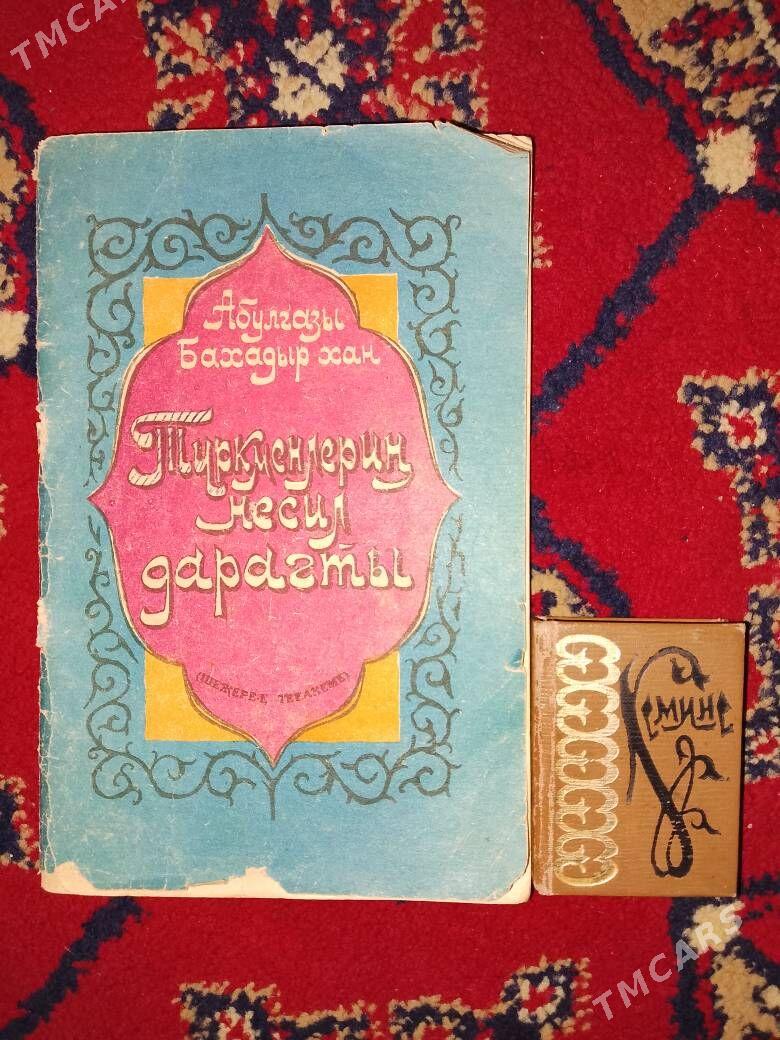 TMCARS
Абулгазы
Бахадыр хан
Түркменлериң
несил
дарагты
(ШЕЖЕРЕ-Е ТЕРАКЕМЕ)
TMCARS